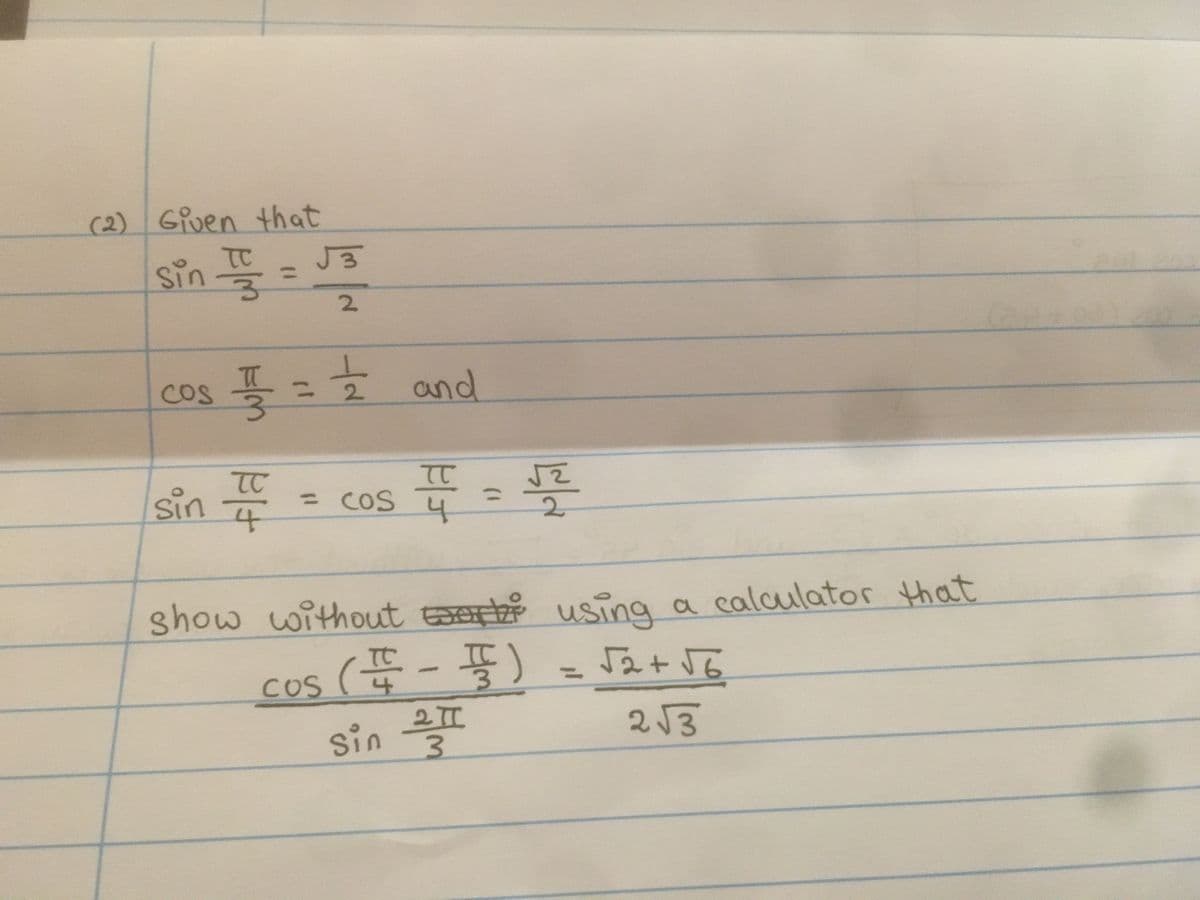 (2) Given that
sin π/3 = √3/2
cos π/3 = 1/2 and
sin π/4 = cos π/4 = √2/2
show without using a calculator that
cos (π/4 - π/3) / sin 2π/3 = √2 + √6 / 2√3